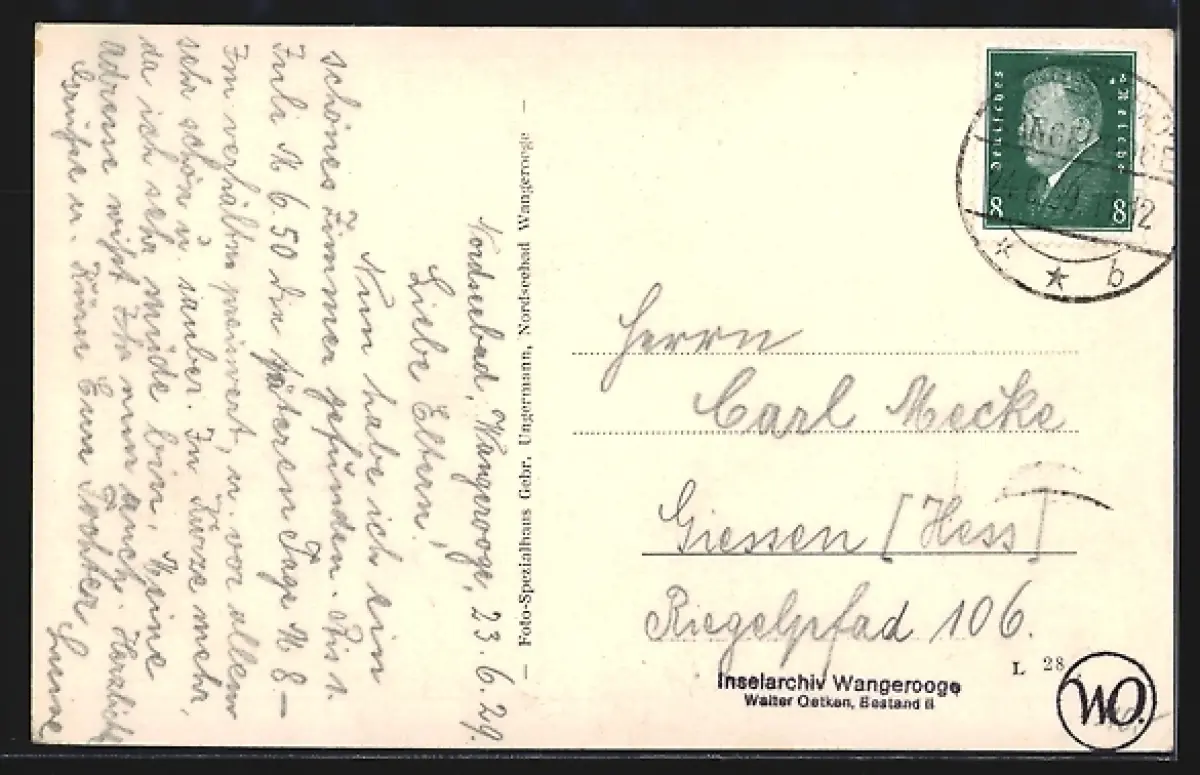 Nordseebad, Wangerooge, 23.6.29.
Liebe Eltern!
Nun habe ich ein
schönes Zimmer gefunden. Bis 1.
Juli M 6.50 die späteren Tage M 8.–
Im verhältnis preiswert, u. vor allem
sehr schön u. sauber. In Kürze mehr,
da ich sehr müde bin. Meine
Adresse wißt Ihr nun auch. Herzliche
Grüße u. Küsse Eure Tochter
— Foto-Spezialhaus Gebr. Ungermann, Nord-seebad Wangerooge —
Deutsches Reich
8 8
b
Herrn
Carl Mecke
Giessen [Hess]
Riegelpfad 106.
L 28
Inselarchiv Wangerooge
Walter Oetken, Bestand B
WO.